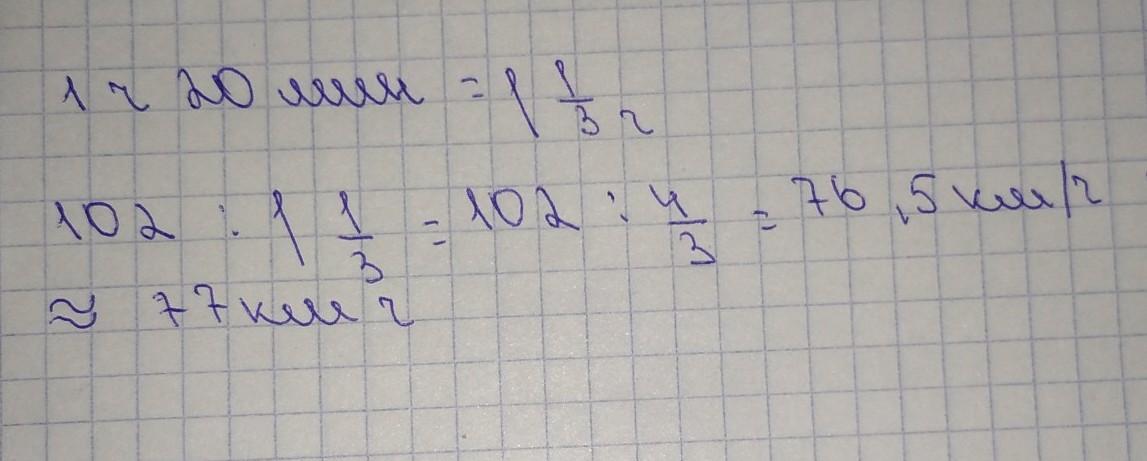 1 ч 20 мин = 1 1/3 ч
102 : 1 1/3 = 102 : 4/3 = 76,5 км/ч
≈ 77 км ч